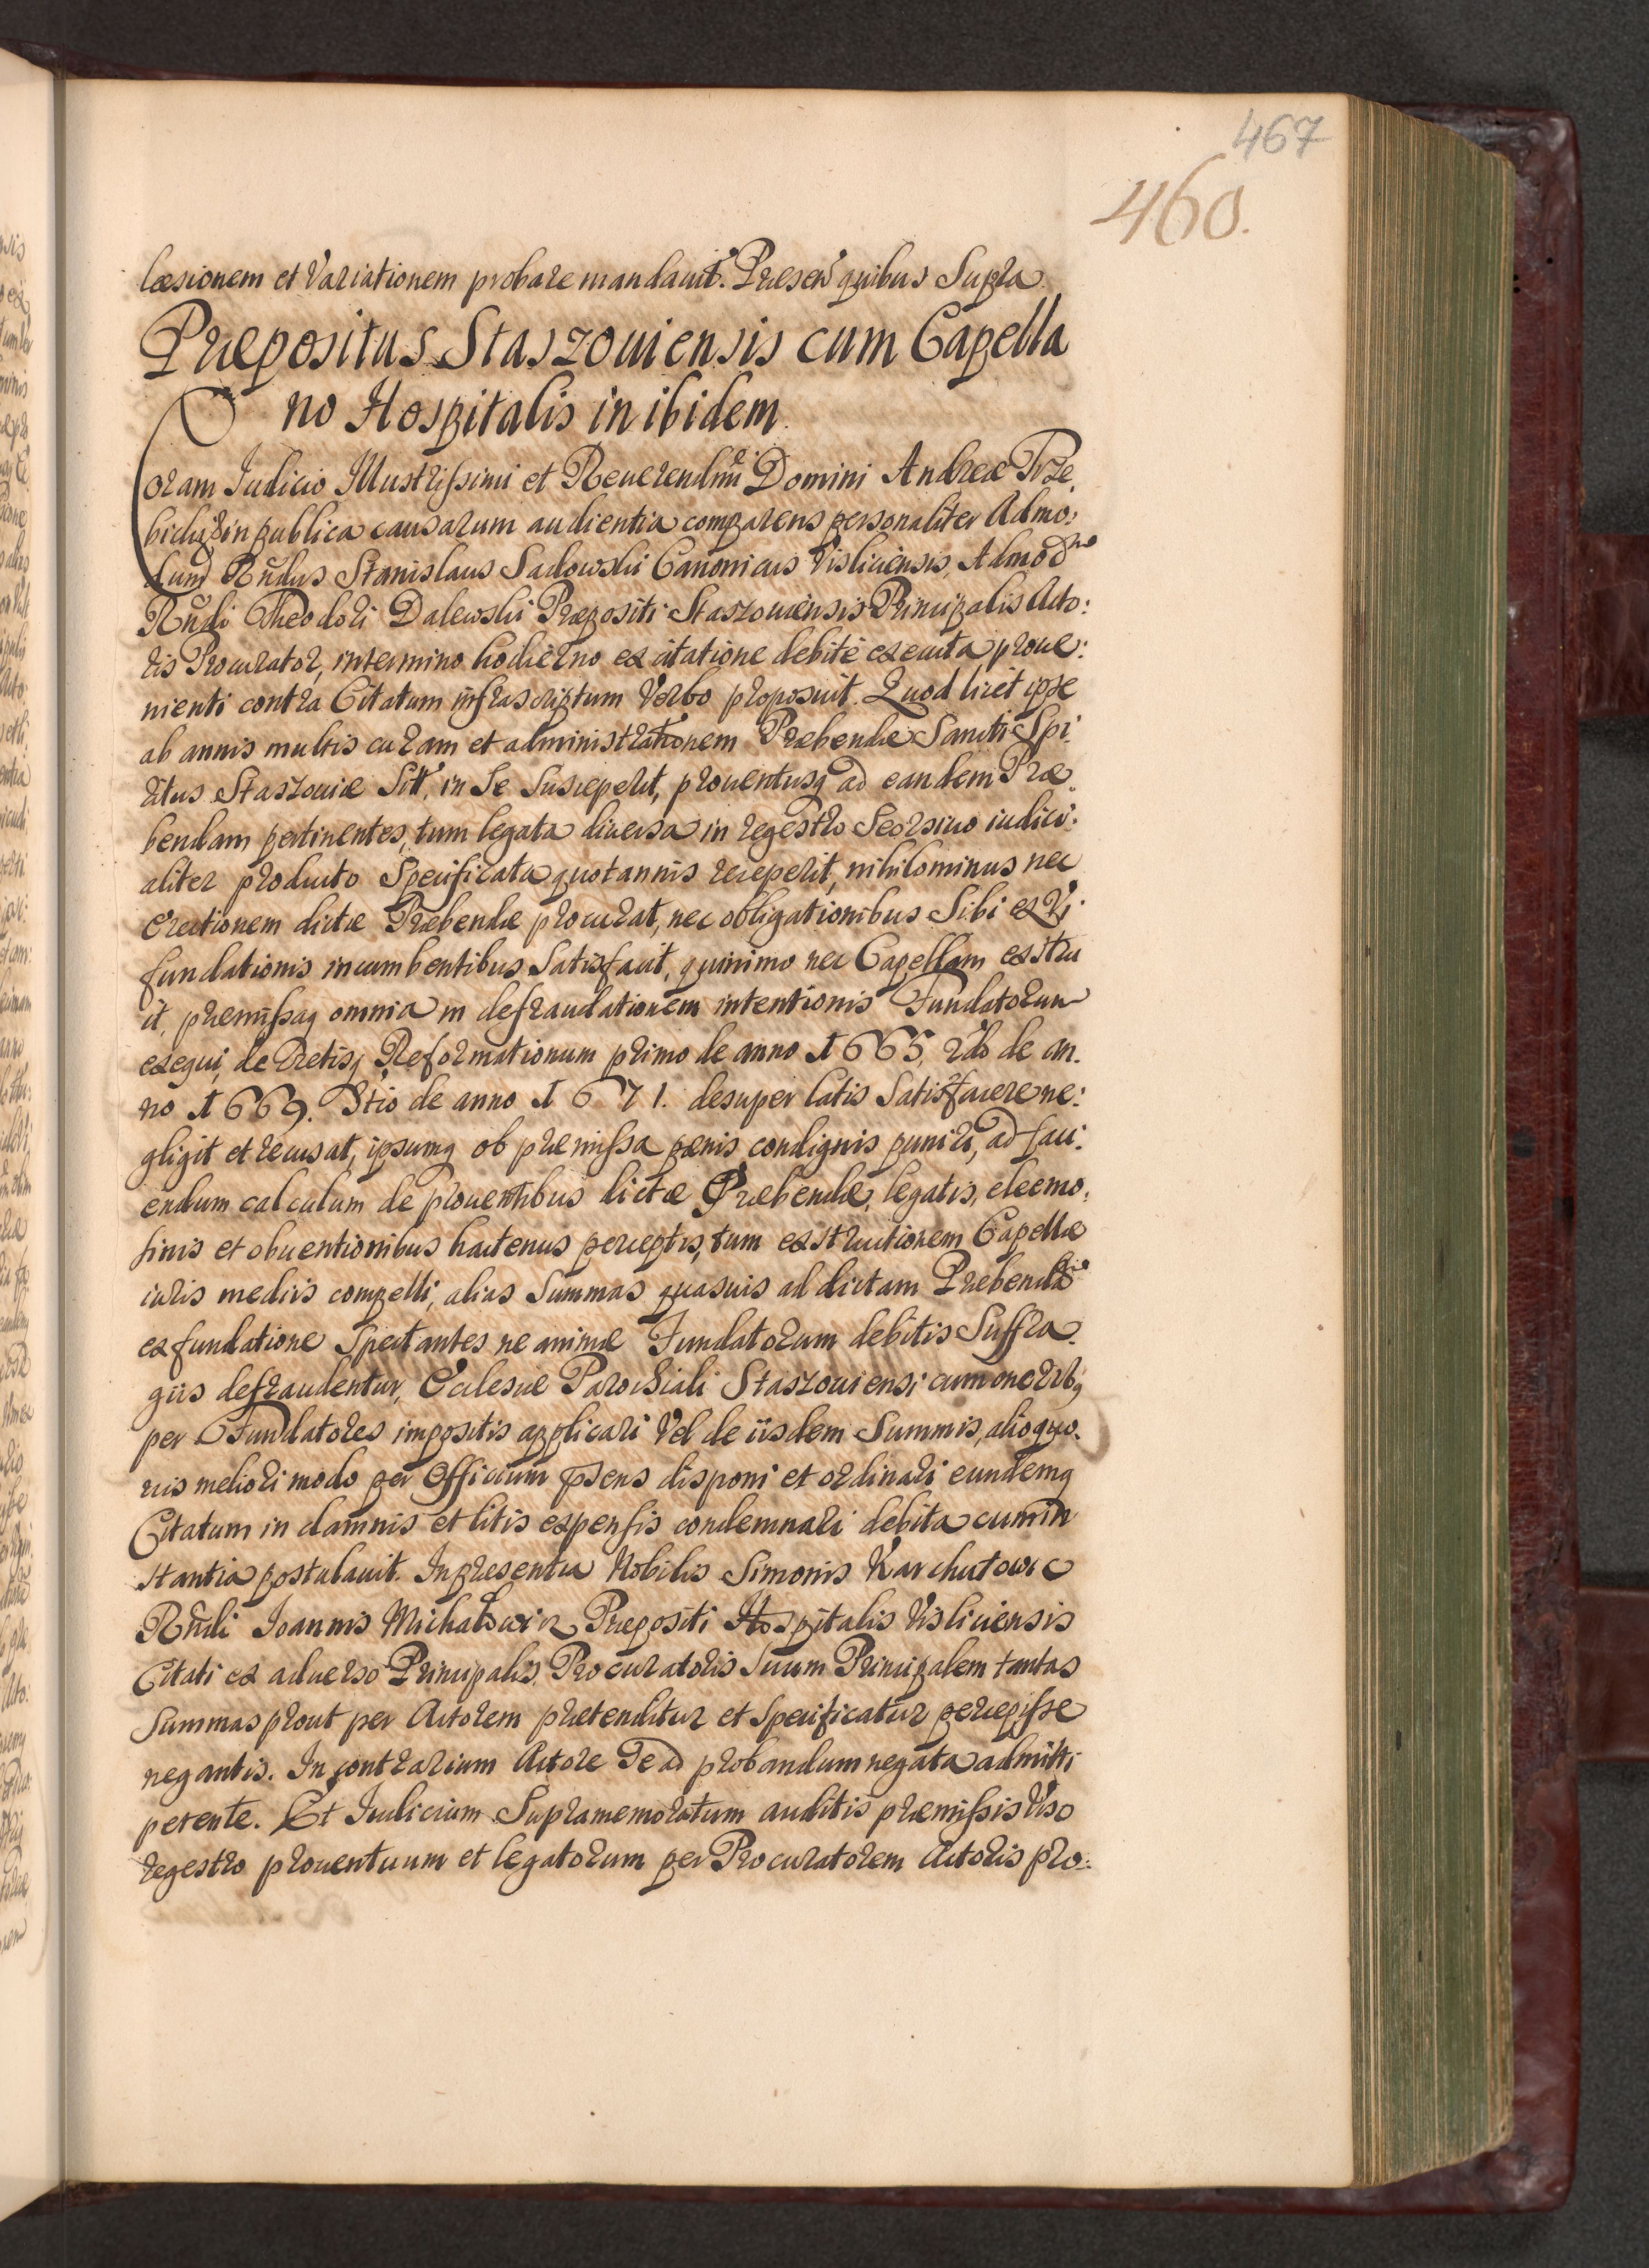 467
460.
læsionem et Variationem probare mandauit. Præsen quibus Supra.
Præpositus Staszouiensis cum Capella
no Hospitalis in ibidem.
Coram Iudicio Illustrissimi et Reuerendmi Domini Andreæ Trze,
bicki in publica causarum audientia comparens personaliter Admo:
dum Rndus Stanislaus Sadowski Canonicus Visliciensis, Admod
Rndi Theodori Dalewski Præpositi Staszouiensis Principalis Acto:
ris Procurator, in termino hodierno ex citatione debite executa proue:
nienti contra Citatum infrascriptum Verbo proposuit. Quod licet ipse
ab annis multis curam et administrationem Præbendæ Sancti Spi:
ritus Staszouiæ Sitt, in Se Susceperit, prouentusq ad eandem Præ
bendam pertinentes, tum legata diuersa in regestro Seorsiuo iudici:
aliter producto Specificata quotannis receperit, nihilominus nec
erectionem dictæ Præbendæ procurat, nec obligationibus Sibi ex Vi
fundationis incumbentibus Satisfacit, quinimo nec Capellam exstru
it, præmissaq omnia in defraudationem intentionis Fundatorum
exequi, decretisq Reformationum primo de anno 1665, 2do de an.
no 1669. 3tio de anno 1671. desuper latis Satisfacere ne:
gligit et recusat, ipsumq ob præmissa pœnis condignis puniri, ad faci:
endum calculum de prouentibus dictæ Præbendæ, legatis, eleemo,
sinis et obuentionibus hactenus perceptis, tum exstructionem Capellæ
iuris mediis compelli, alias Summas quasuis ad dictam Præbenda
ex fundatione Spectantes ne animæ Fundatorum debitis Suffra.
giis defraudentur, Ecclesiæ Parochiali Staszouiensi cum oneribq
per Fundatores impositis applicari Vel de iisdem Summis, alioquo.
uis meliori modo per Officium psens disponi et ordinari eundemq
Citatum in damnis et litis expensis condemnari debita cum in
stantia postulauit. In præsentia Nobilis Simonis Karchutowic
Rndi Ioannis Michałowicz Præpositi Hospitalis Visliciensis
Citati ex aduerso Principalis Procuratoris Suum Principalem tantas
Summas prout per Actorem prætenditur et Specificatur percepisse
negantis. In contrarium Actore Se ad probandum negata admitti
petente. Et Iudicium Supramemoratum auditis præmissis Viso
regestro prouentuum et legatorum per Procuratorem Actoris pro: